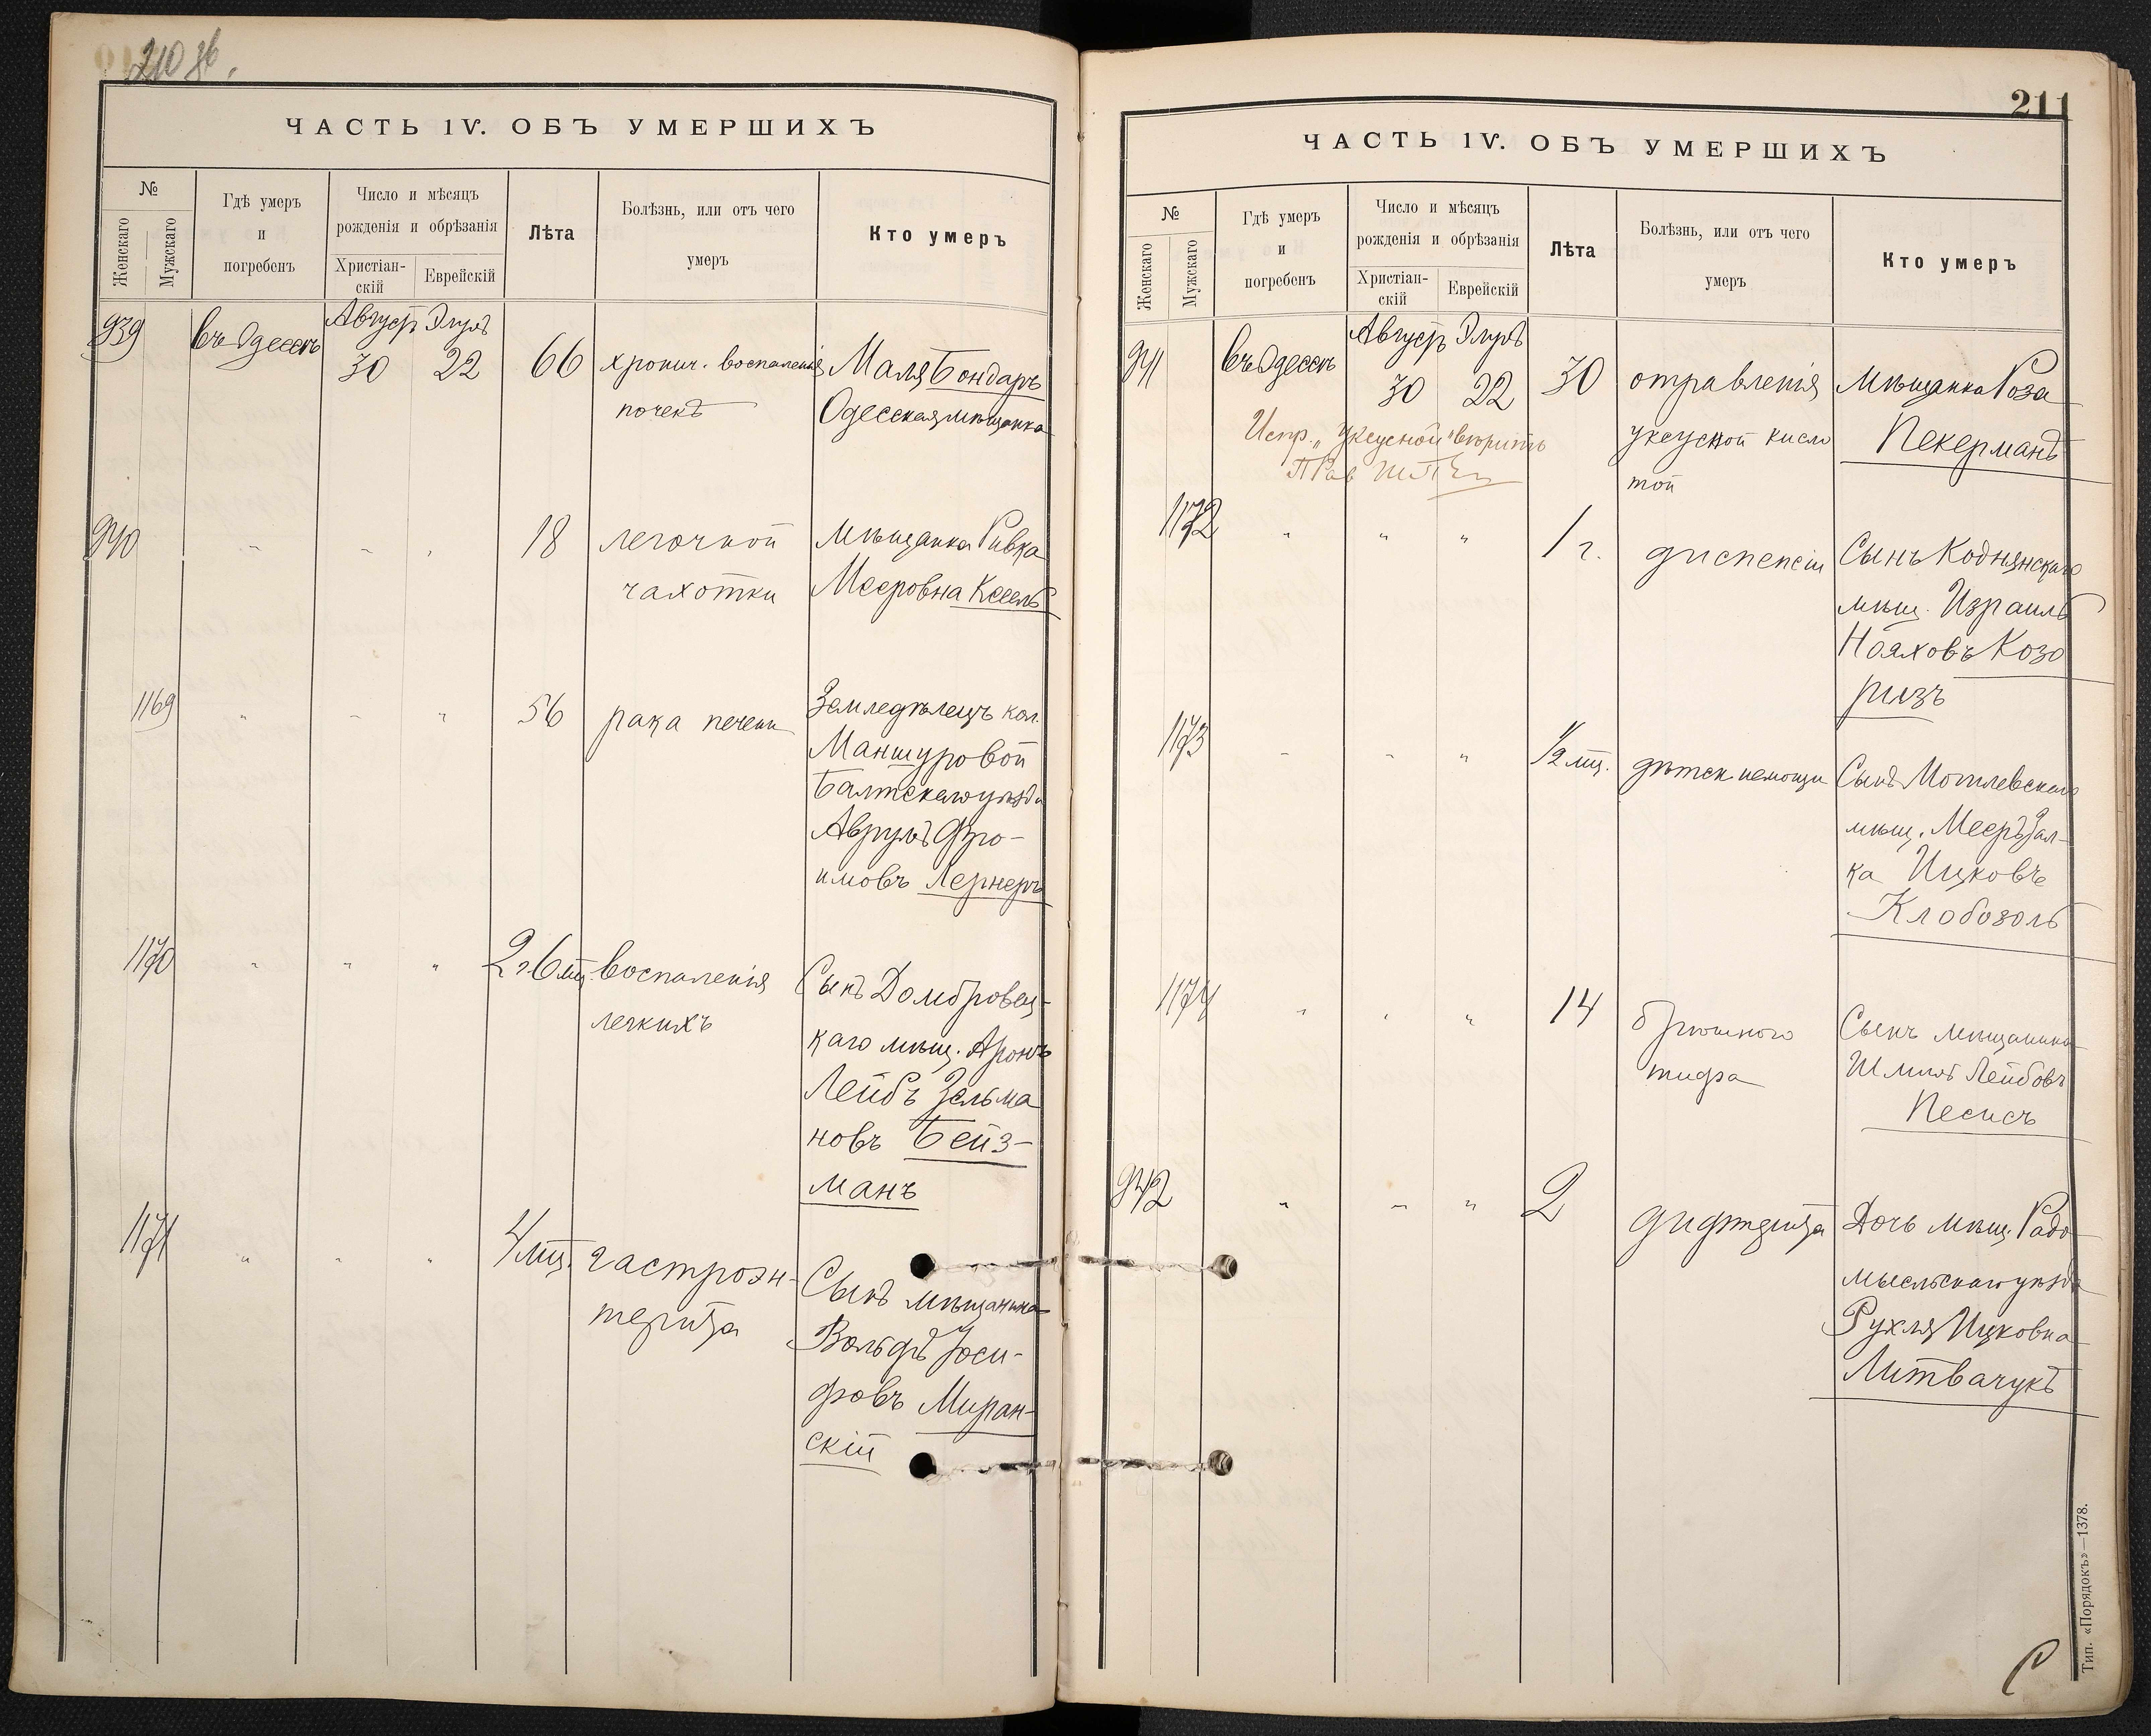 210 об.
ЧАСТЬ IV. ОБЪ УМЕРШИХЪ
№
Женскаго
Мужскаго
Гдѣ умеръ
и
погребенъ
Число и мѣсяцъ
рожденія и обрѣзанія
Христіан-
скій
Еврейскій
Лѣта
Болѣзнь, или отъ чего
умеръ
Кто умеръ
939
въ Одессѣ
Август Элулъ
30 22
66
хронич. воспаленія
почекъ
Маля Бондаръ
Одесская мѣщанка
940
" " "
18
легочной
чахотки
мѣщанка Ривка
Мееровна Кесель
1169
" " "
56
рака печени
Земледѣлецъ кол.
Маншуровой
Балтскаго уѣзда
Аврумъ Фро-
имовъ Лернеръ
1170
" " "
2 г. 6 мц.
воспаленія
легкихъ
Сынъ Домбровец-
каго мѣщ. Аронъ
Лейбъ Зельма
новъ Бейз-
манъ
1171
" " "
4 мц.
гастроэн-
терита
Сынъ мѣщанина
Вольфъ Іоси-
фовъ Миран-
скій
211
ЧАСТЬ IV. ОБЪ УМЕРШИХЪ
№
Женскаго
Мужскаго
Гдѣ умеръ
и
погребенъ
Число и мѣсяцъ
рожденія и обрѣзанія
Христіан-
скій
Еврейскій
Лѣта
Болѣзнь, или отъ чего
умеръ
Кто умеръ
941
въ Одессѣ
Август Элулъ
30 22
30
отравленія
уксусной кисло
той
Мѣщанка Роза
Пекерманъ
Испр. „уксусной" вѣрить
1172
" " "
1 г.
диспепсіи
Сынъ Коднянскаго
мѣщ. Израиль
Нояховъ Козо
ризъ
1173
" " "
1/2 мц.
дѣтск. немощи
Сынъ Могилевскаго
мѣщ. Мееръ Зал-
ка Ицковъ
Клобозоль
1174
" " "
14
брюшного
тифа
Сынъ мѣщанина
Шмилъ Лейбовъ
Песисъ
942
" " "
2
дифтерита
Дочь мѣщ. Радо
мысльскаго уѣзда
Рухля Ицковна
Литвачукъ
Тип. «Порядокъ»—1378.